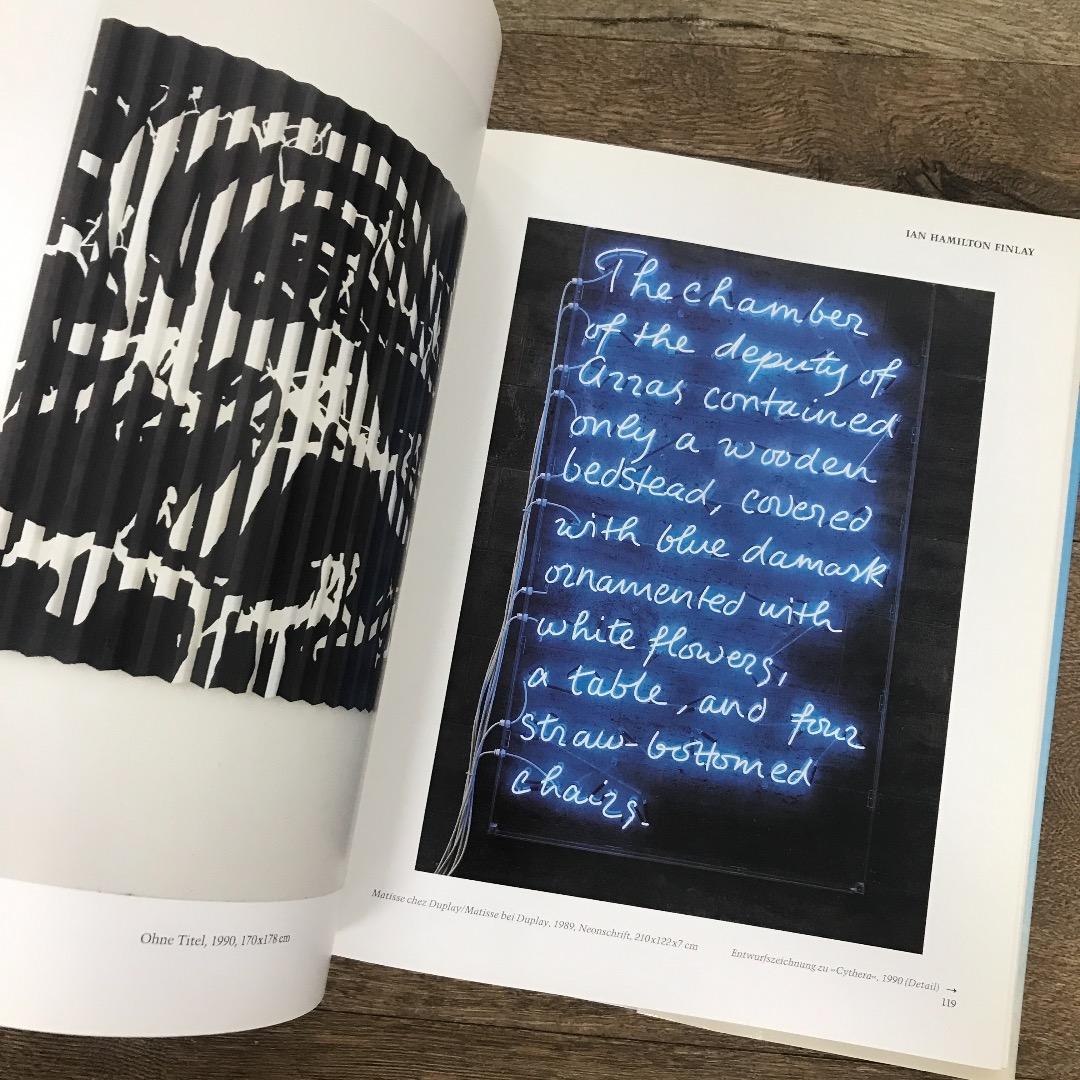 Ohne Titel, 1990, 170x178 cm
IAN HAMILTON FINLAY
The chamber
of the deputy of
Arras contained
only a wooden
bedstead, covered
with blue damask
ornamented with
white flowers,
a table, and four
straw-bottomed
chairs.
Matisse chez Duplay/Matisse bei Duplay, 1989, Neonschrift, 210x122x7 cm
Entwurfszeichnung zu »Cythera«, 1990 (Detail) →
119